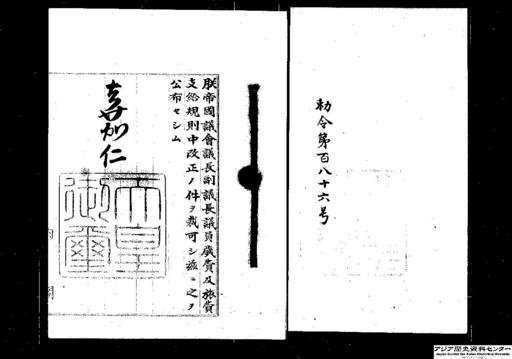 勅令第百八十六号
朕帝國議會議長副議長議員歳費及旅費
支給規則中改正ノ件ヲ裁可シ茲ニ之ヲ
公布セシム
嘉仁
天皇
御璽
アジア歴史資料センター
Japan Center for Asian Historical Records